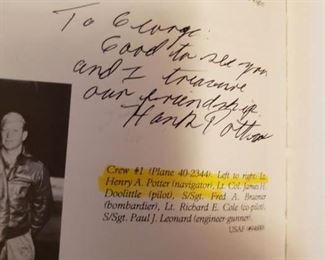 To George:
Good to see you
and I treasure
our friendship
Hank Potter
Crew #1 (Plane 40-2344). Left to right: Lt.
Henry A. Potter (navigator), Lt. Col. James H.
Doolittle (pilot), S/Sgt. Fred A. Braemer
(bombardier), Lt. Richard E. Cole (co-pilot),
S/Sgt. Paul J. Leonard (engineer-gunner).
USAF